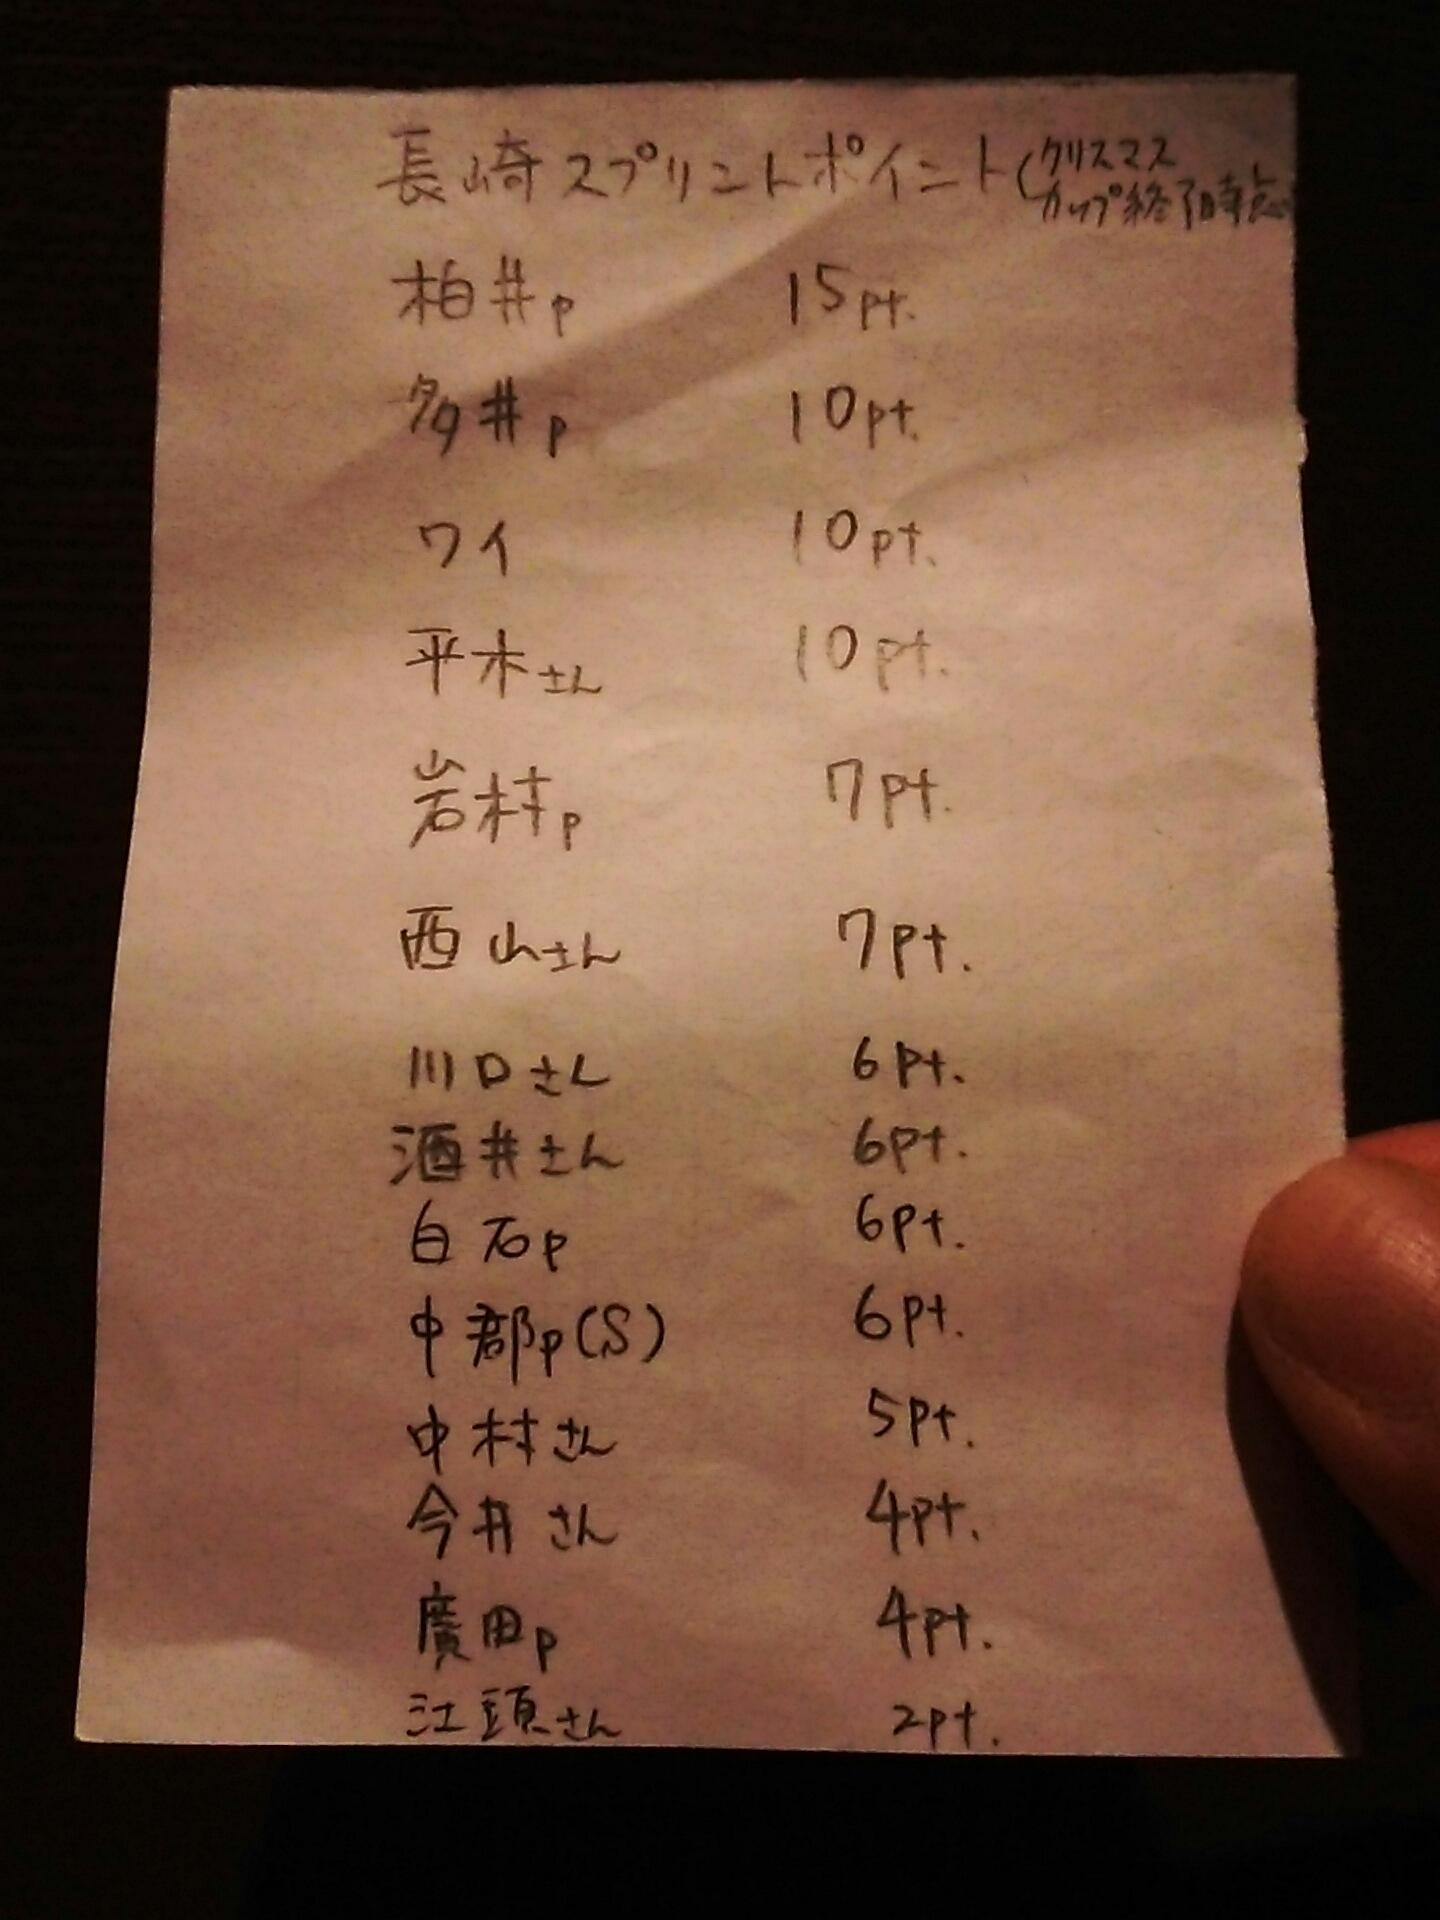 長崎スプリントポイント(クリスマス
カップ終了時点
柏井p 15pt.
多井p 10pt.
ワイ 10pt.
平木さん 10pt.
岩村p 7pt.
西山さん 7pt.
川口さん 6pt.
酒井さん 6pt.
白石p 6pt.
中郡p(S) 6pt.
中村さん 5pt.
今井さん 4pt.
廣田p 4pt.
江頭さん 2pt.